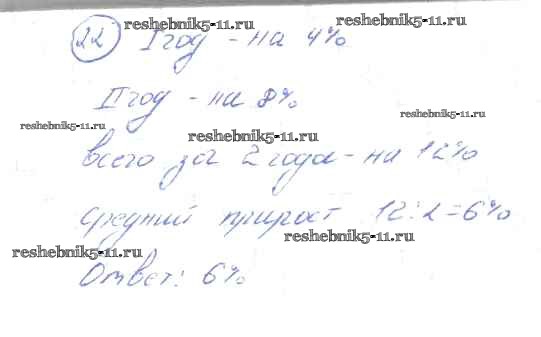 reshebnik5-11.ru
22 I год - на 4%
reshebnik5-11.ru
II год - на 8%
reshebnik5-11.ru
reshebnik5-11.ru
reshebnik5-11.ru
всего за 2 года - на 12%
средний прирост 12:2=6%
reshebnik5-11.ru
reshebnik5-11.ru
Ответ: 6%